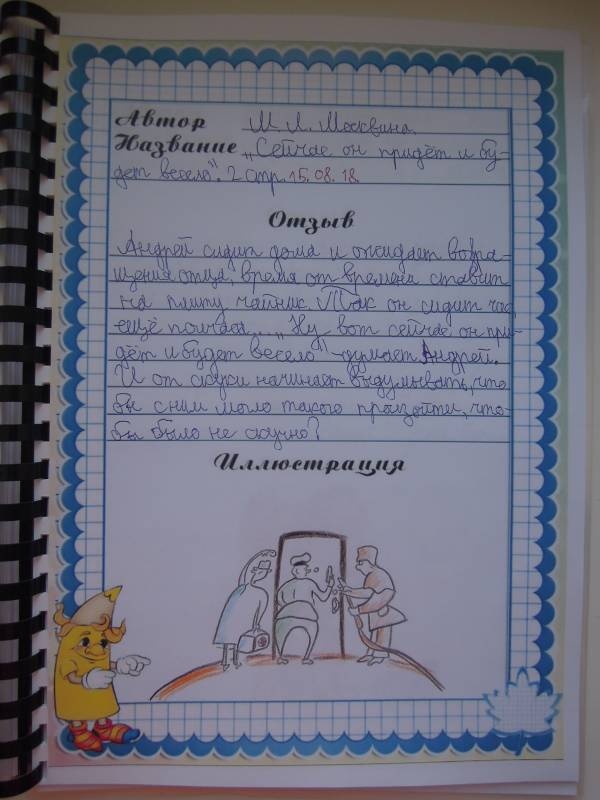 Автор М. Л. Москвина.
Название „Сейчас он придёт и бу-
дет весело". 2 стр. 15.08.18
Отзыв
Андрей сидит дома и ожидает возра-
щения отца, время от времени ставит
на плиту чайник. Так он сидит час,
ещё полчаса... „Ну вот сейчас он при-
дёт и будет весело" - думает Андрей.
И от скуки начинает выдумывать, что
бы с ним могло такого произойти, что-
бы было не скучно?
Иллюстрация